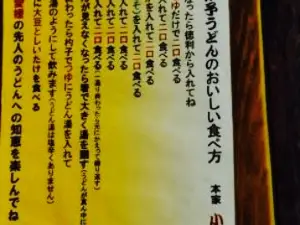 予うどんのおいしい食べ方
本家
なったら徳利から入れてね
つゆだけで二口食べる
入れて二口食べる
そを入れて二口食べる
入れて二口食べる
入れて二口食べる
入れて二口食べる
が見えなくなったら箸で大きく湯を廻す
わったら杓子でつゆにうどん湯を入れて
湯のようにして飲みます(うどん湯は塩辛くありません)
に大豆としいたけを食べる
の先人のうどんへの知恵を楽しんでね